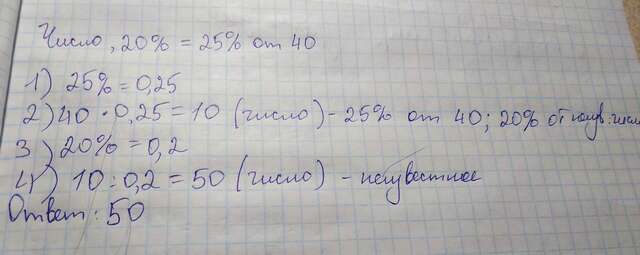 Число, 20% = 25% от 40
1) 25% = 0,25
2) 40 · 0,25 = 10 (число) - 25% от 40; 20% от
3) 20% = 0,2
4) 10 : 0,2 = 50 (число) - неизвестное
Ответ: 50